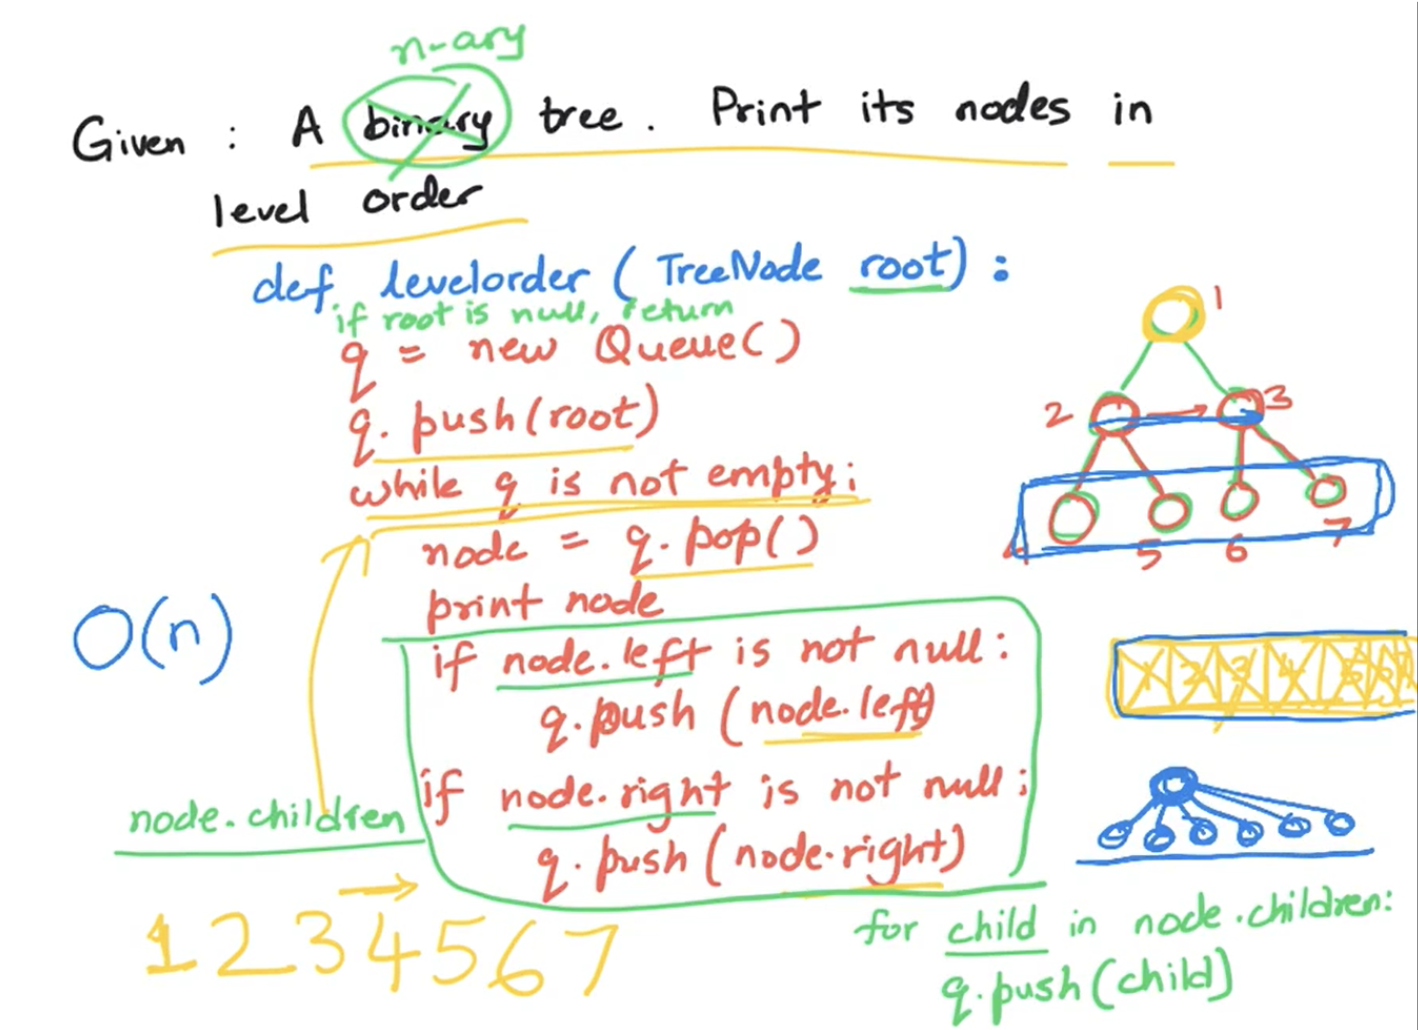 n-ary
Given : A binary tree . Print its nodes in
level order
def levelorder ( TreeNode root) :
if root is null, return
q = new Queue()
q. push(root)
while q is not empty:
node = q.pop()
print node
if node.left is not null:
q.push (node.left)
if node.right is not null:
q.push (node.right)
O(n)
node.children
1 2 3 4 5 6 7
1
2 3
4 5 6 7
1 2 3 4 5 6
for child in node.children:
q.push(child)